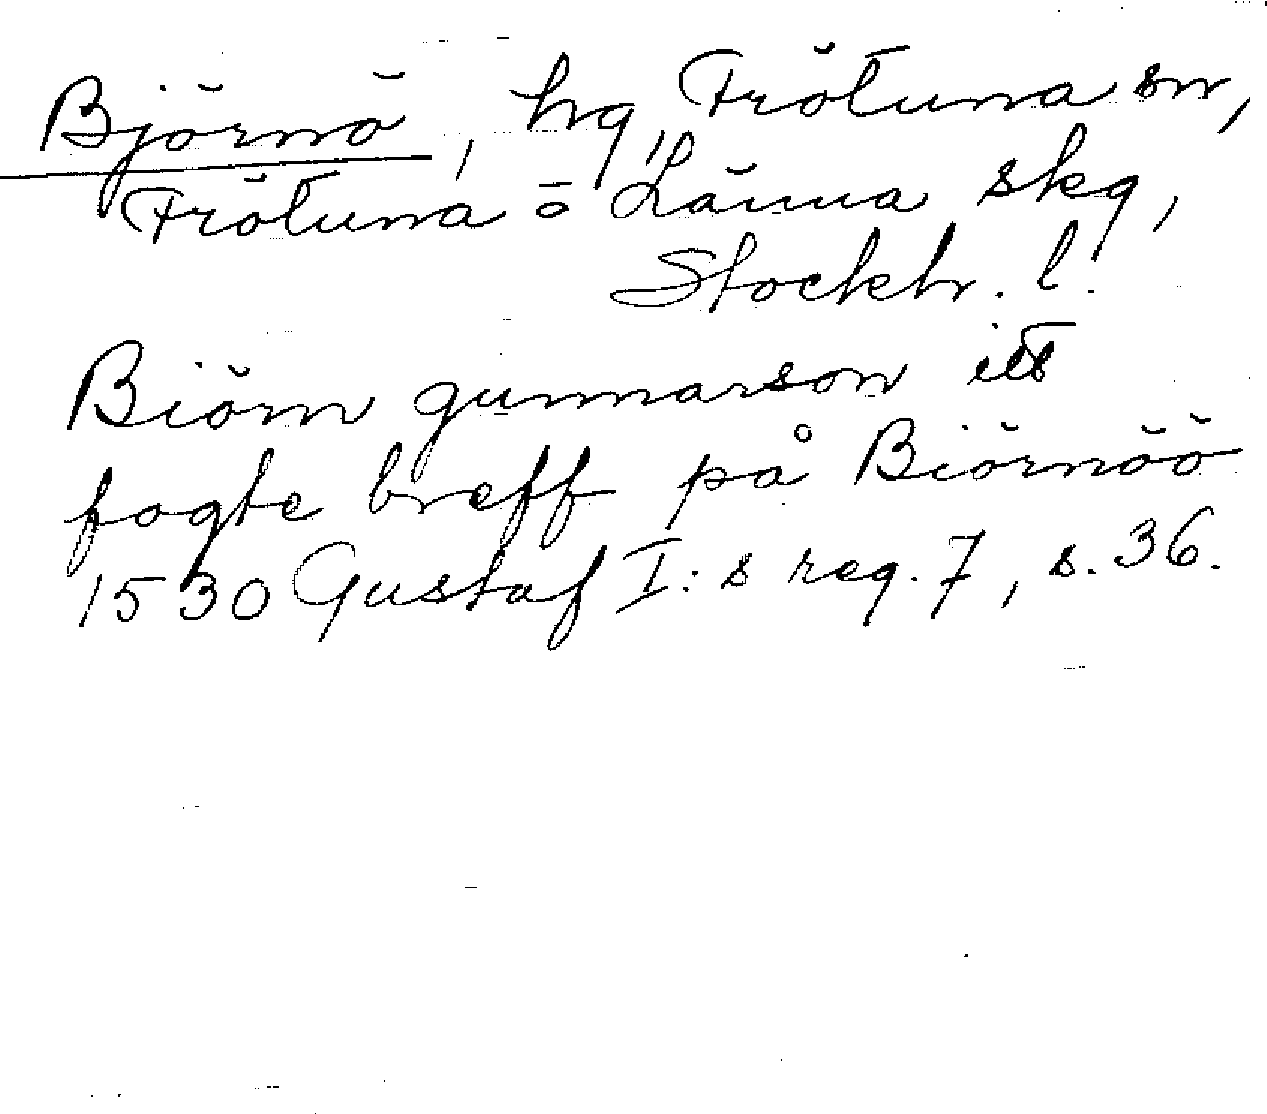 Björnö, hg, Frötuna sn,
Frötuna o Länna skg,
Stockh. l.
Biörn gunnarson itt
fogte breff på Biörnöö
1530 Gustaf I:s reg. 7, s. 36.